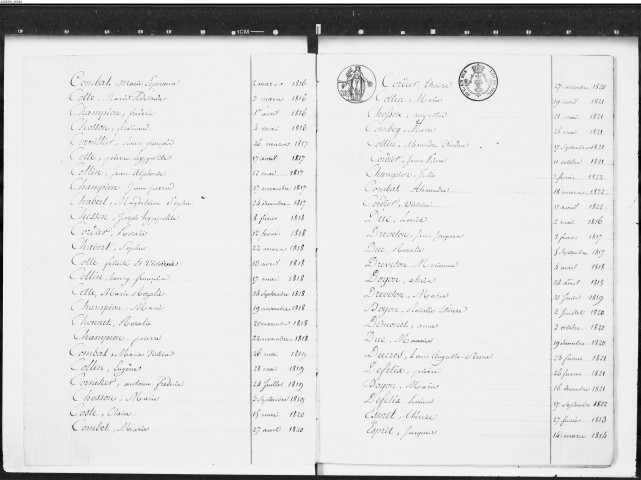 Combat, Marie 2 mars 1816
Cotte, Marie 3 mars 1816
Champion, frédéric 1er avril 1816
Chosson, ferdinand 4 mai 1816
Cornillet, 26 mars 1817
Cotte, pierre hyppolite 17 avril 1817
Collin, Jean Alphonse 12 mai 1817
Champion 17 novembre 1817
Chabert, Magdeleine Sophie 24 décembre 1817
Chosson, Joseph hyppolite 8 février 1818
Cordier, Rosalie 12 février 1818
Chabert, Sophie 22 mars 1818
Cotte 13 avril 1818
Collin, françois 17 mai 1818
Cotte, Marie Rosalie 14 septembre 1818
Champion, Marie 19 novembre 1818
Chonnet, Rosalie 20 novembre 1818
Champion, pierre 24 novembre 1818
Combat, Marie 26 mai 1819
Collin, Eugène 28 mai 1819
Cornitier, antoine frédéric 24 juillet 1819
Chosson, Marie 3 septembre 1819
Coste, Claire 15 mai 1820
Combet, Marie 27 avril 1820
Cordier, thérèse 27 novembre 1820
Collin, Marie 19 avril 1821
Chosson, augustin 21 mai 1821
Combey, Marie 28 mai 1821
Collin, Alexandre 17 septembre 1821
Cordier, Jean pierre 11 octobre 1821
Champion, Julie 2 février 1822
Combat Alexandre 18 mars 1822
Cordier, 17 avril 1822
Duc, Louise 2 mai 1816
Dreveton, Jean Jacques 7 février 1817
Duc, Rosalie 5 septembre 1817
Dreveton, Marianne 4 avril 1818
Doyon, alexis 28 avril 1818
Dreveton, Marie 21 juin 1819
Doyon, Rosalie thérèse 2 juillet 1820
Démoret, anne 3 octobre 1820
Duc, Maurice 19 décembre 1820
Ducros, Louis Auguste Pierre 23 février 1821
Défélix, 26 février 1821
Doyon, Marie 26 décembre 1821
Défélix, Louise 17 septembre 1822
Esprit, thérèse 27 février 1813
Esprit, Jacques 14 mars 1814